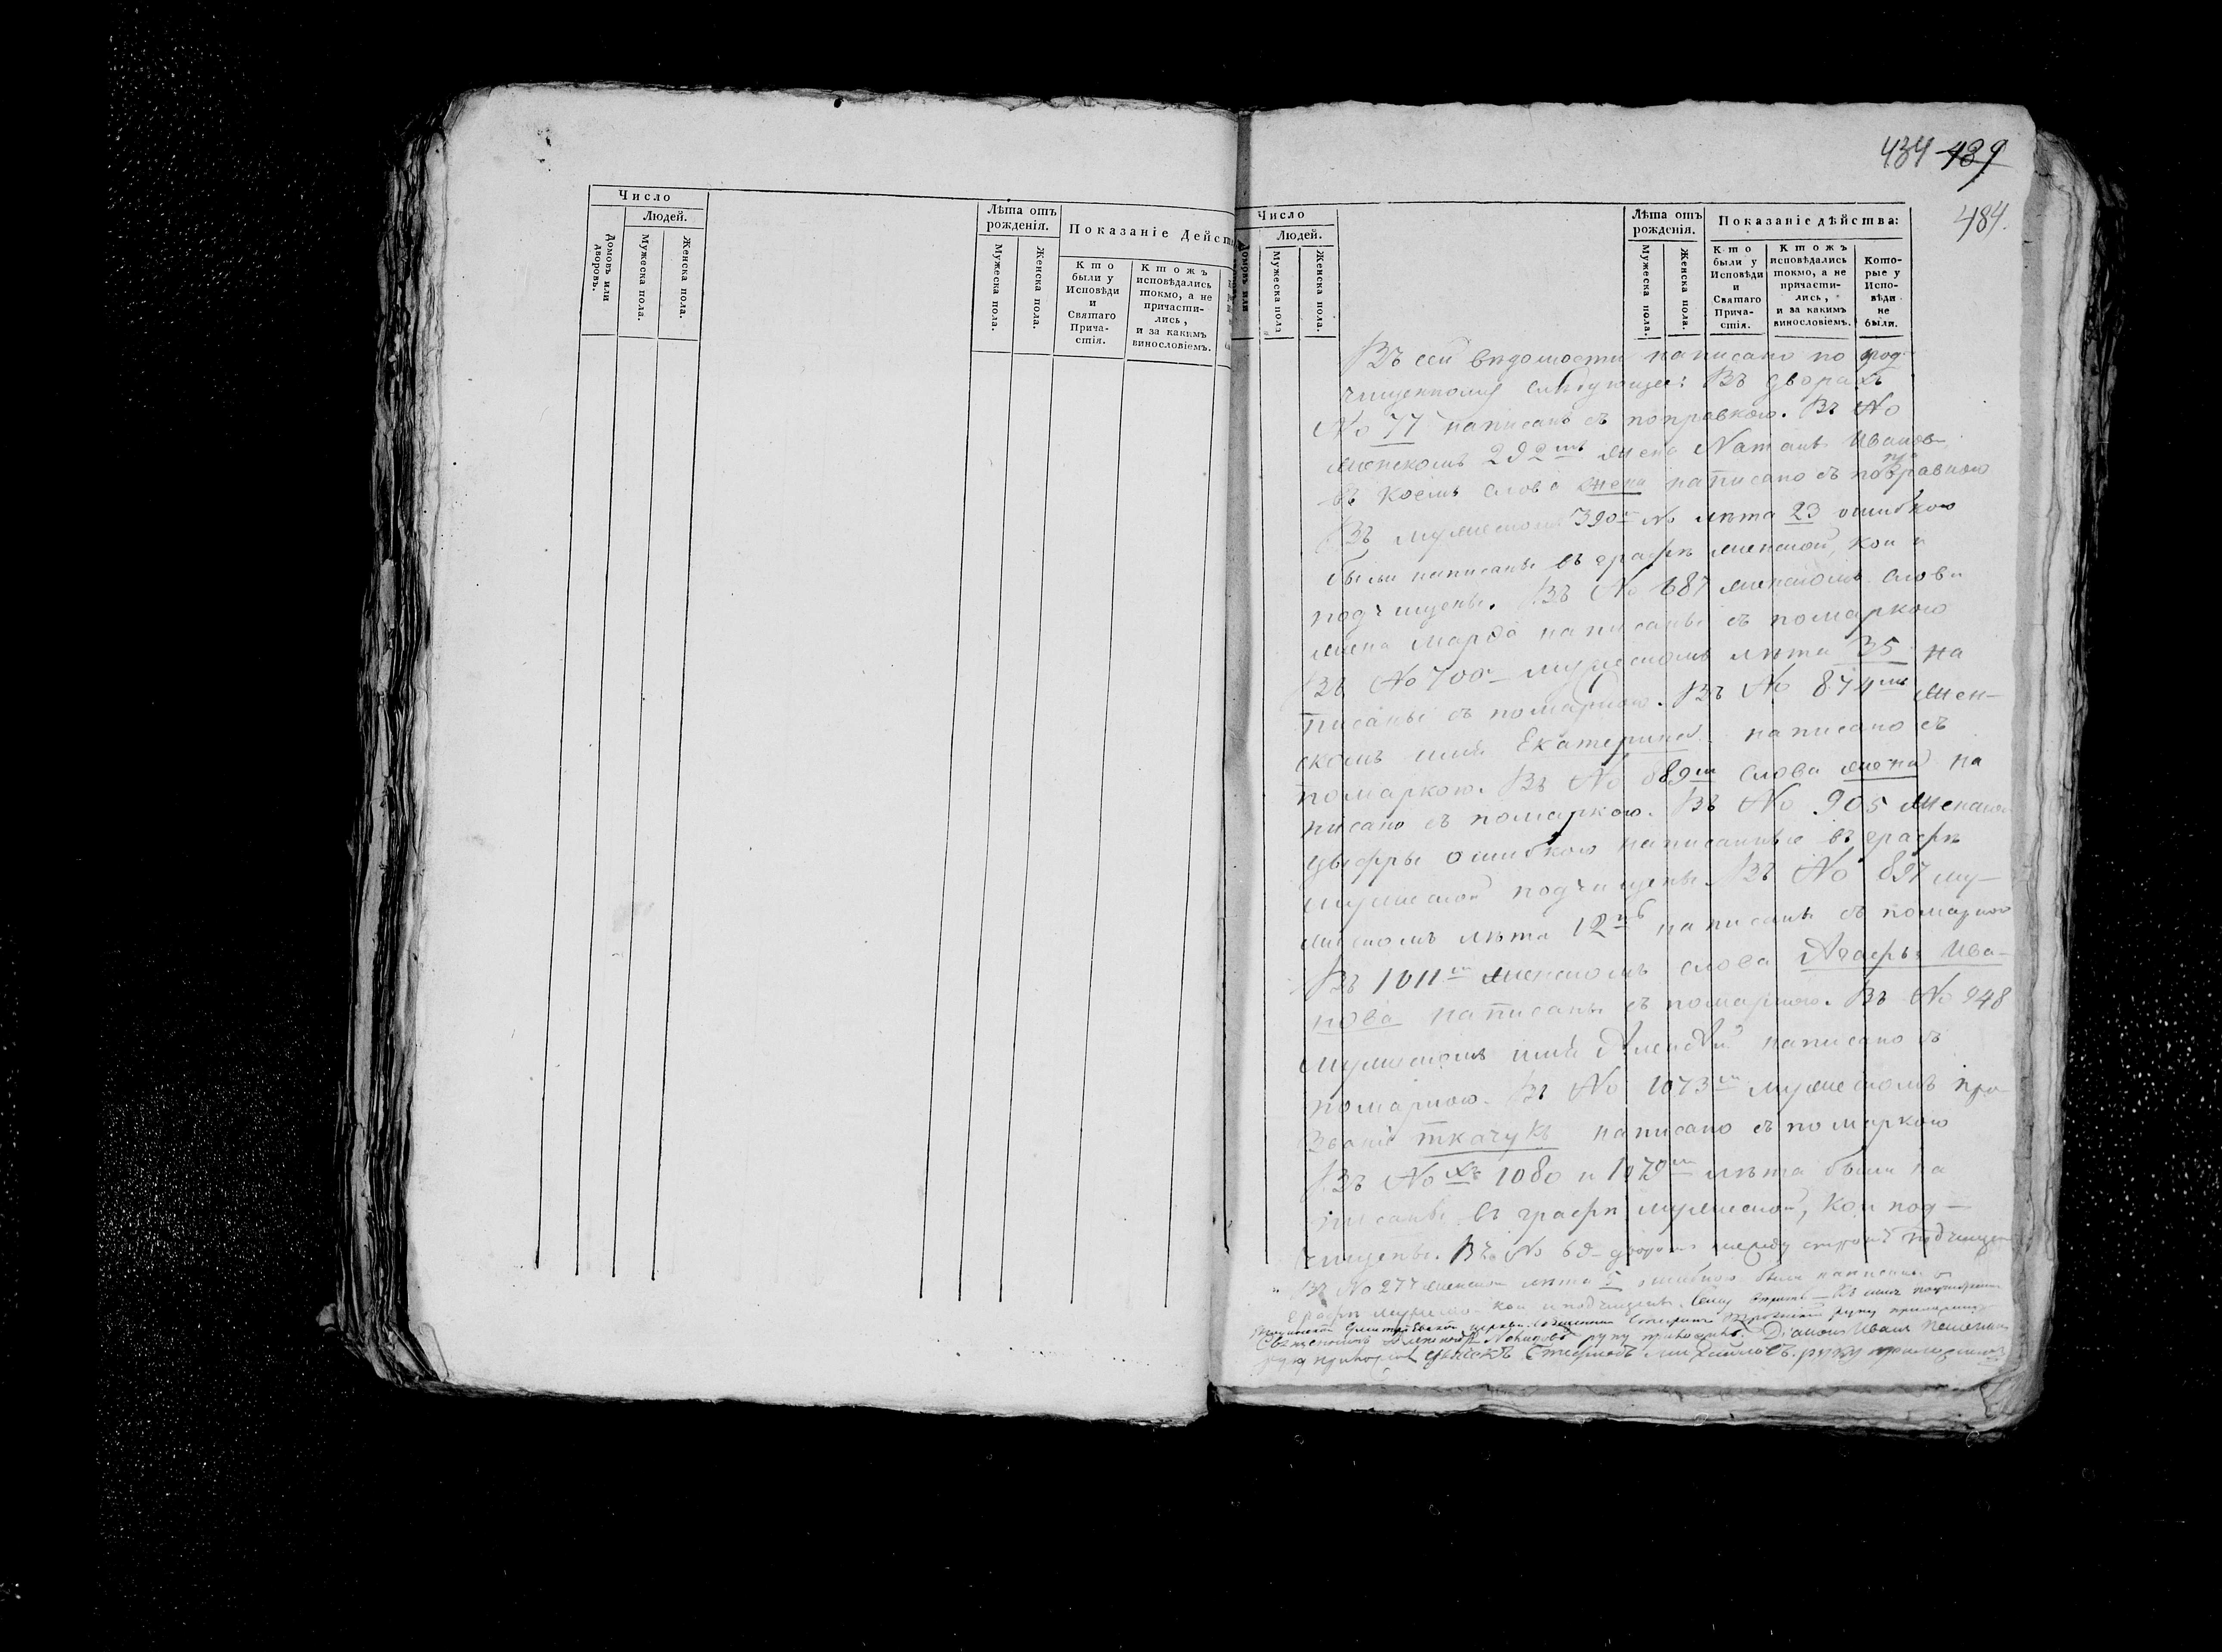 Число
Людей.
Домовъ или дворовъ.
Мужеска пола.
Женска пола.
Лѣта отъ рожденія.
Мужеска пола.
Женска пола.
Показаніе Дейст
Кто были у Исповѣди и Святаго Прича-стія.
Ктожъ исповѣдались токмо, а не причасти-лись, и за какимъ винословіемъ.
434 489
484.
Число
Людей.
Домовъ или
Мужеска пола
Женска пола.
Лѣта отъ рожденія.
Мужеска пола.
Женска пола.
Показаніе дѣйства:
Кто были у Исповѣди и Святаго Прича-стія.
Ктожъ исповѣдались токмо, а не причасти-лись, и за какимъ винословіемъ.
Кото-рые у Испо-вѣди не были.
Въ сей вѣдомости написано по под-
чищенному слѣдующее: Въ дворахъ
No 77 написано съ поправкою. Въ No
женскомъ 292мъ жена Наталъ Иванов
въ коемъ слово жена написано съ поправкою
Въ мужескомъ 390м No лѣта 23 ошибкою
были написаны въ графѣ женской, кои и
подчищены. Въ No 687 женскомъ слова
жена Марѳа написаны съ помаркою
Въ No 700м мужескомъ лѣта 35 на
писаны съ помаркою. Въ No 874мъ жен-
скомъ имя Екатерина написано съ
помаркою. Въ No 889м слово жена на
писано съ помаркою. Въ No 905 женском
цыфры ошибкою написанные въ графѣ
мужеской подчищены. Въ No 897 му-
жескомъ лѣта 12 написаны съ помаркою
Въ 1011м женскомъ слова Агафья Ива-
нова написаны съ помаркою. Въ No 948
мужескомъ имя Алексѣй написано съ
помаркою. Въ No 1073м мужескомъ про-
званіе ткачукъ написано съ помаркою
Въ No хъ 1080 и 1079м лѣта были на
писаны въ графѣ мужеской, кои под-
чищены. Въ No 69
Въ No 277 лѣта ошибкою были написаны
графѣ кои и подчищены.
церкви Священникъ руку приложилъ
Священникъ руку приложилъ. Діаконъ Иванъ
руку приложилъ Стефанъ Михайловъ руку приложилъ